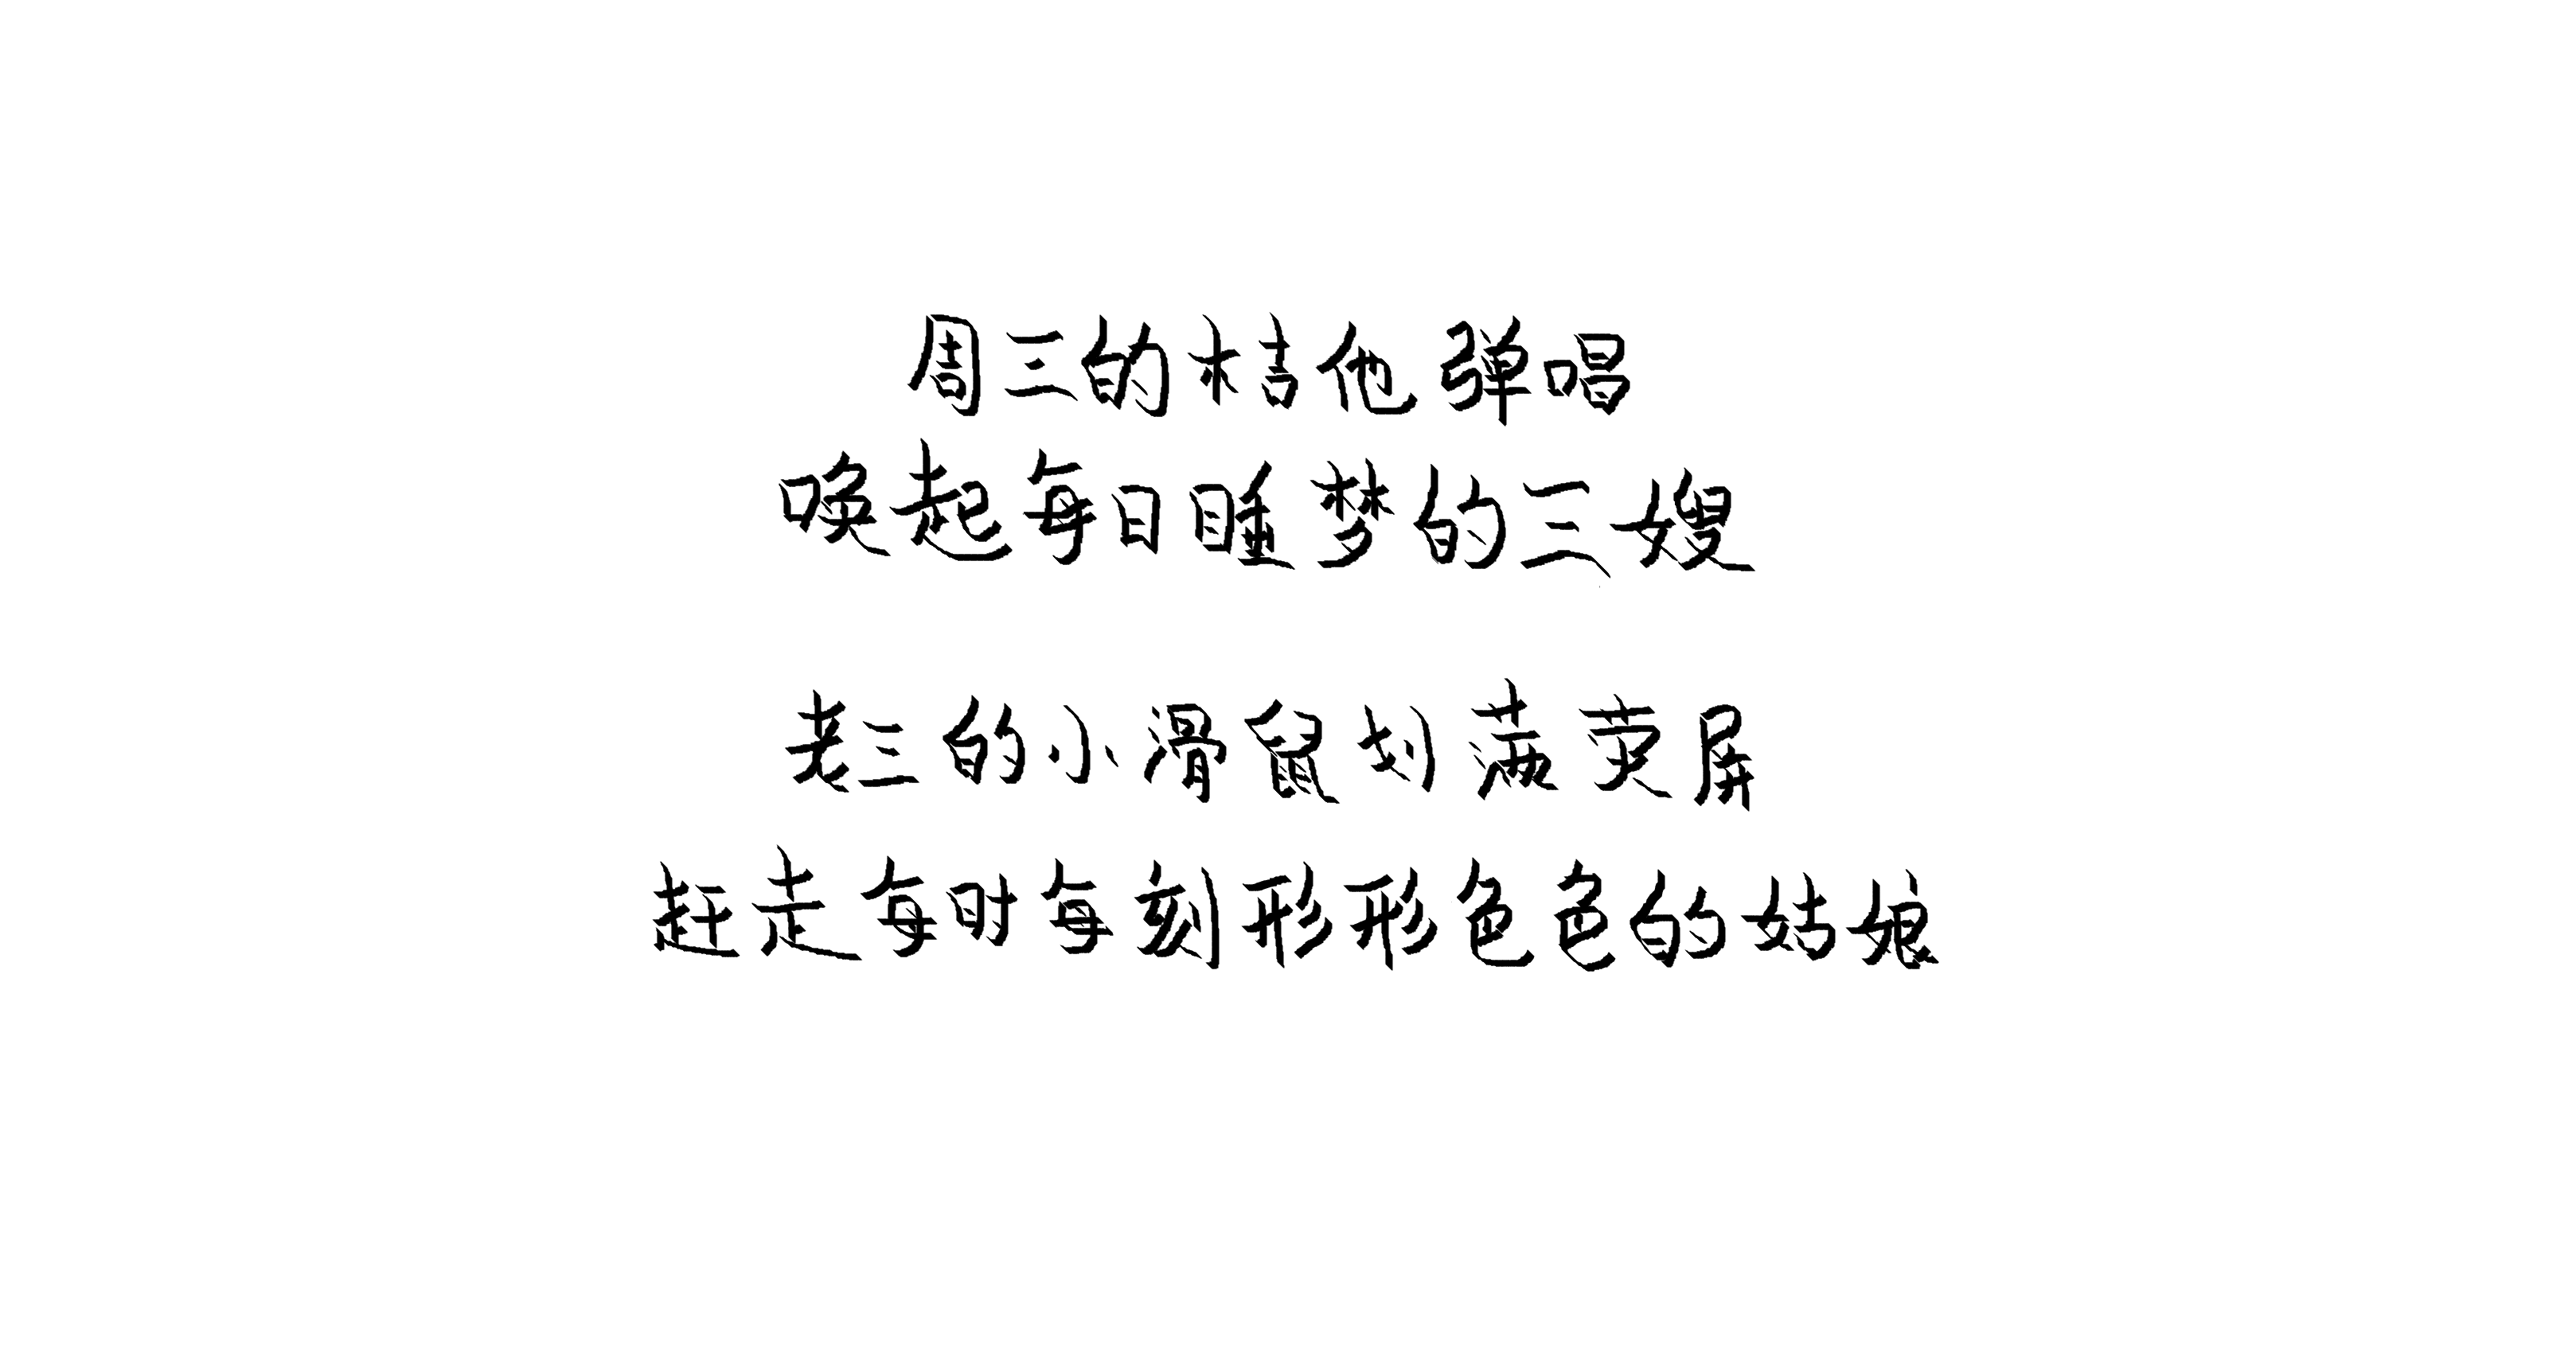 周三的桔他弹唱
唤起每日睡梦的三嫂
老三的小滑鼠划满荧屏
赶走每时每刻形形色色的姑娘